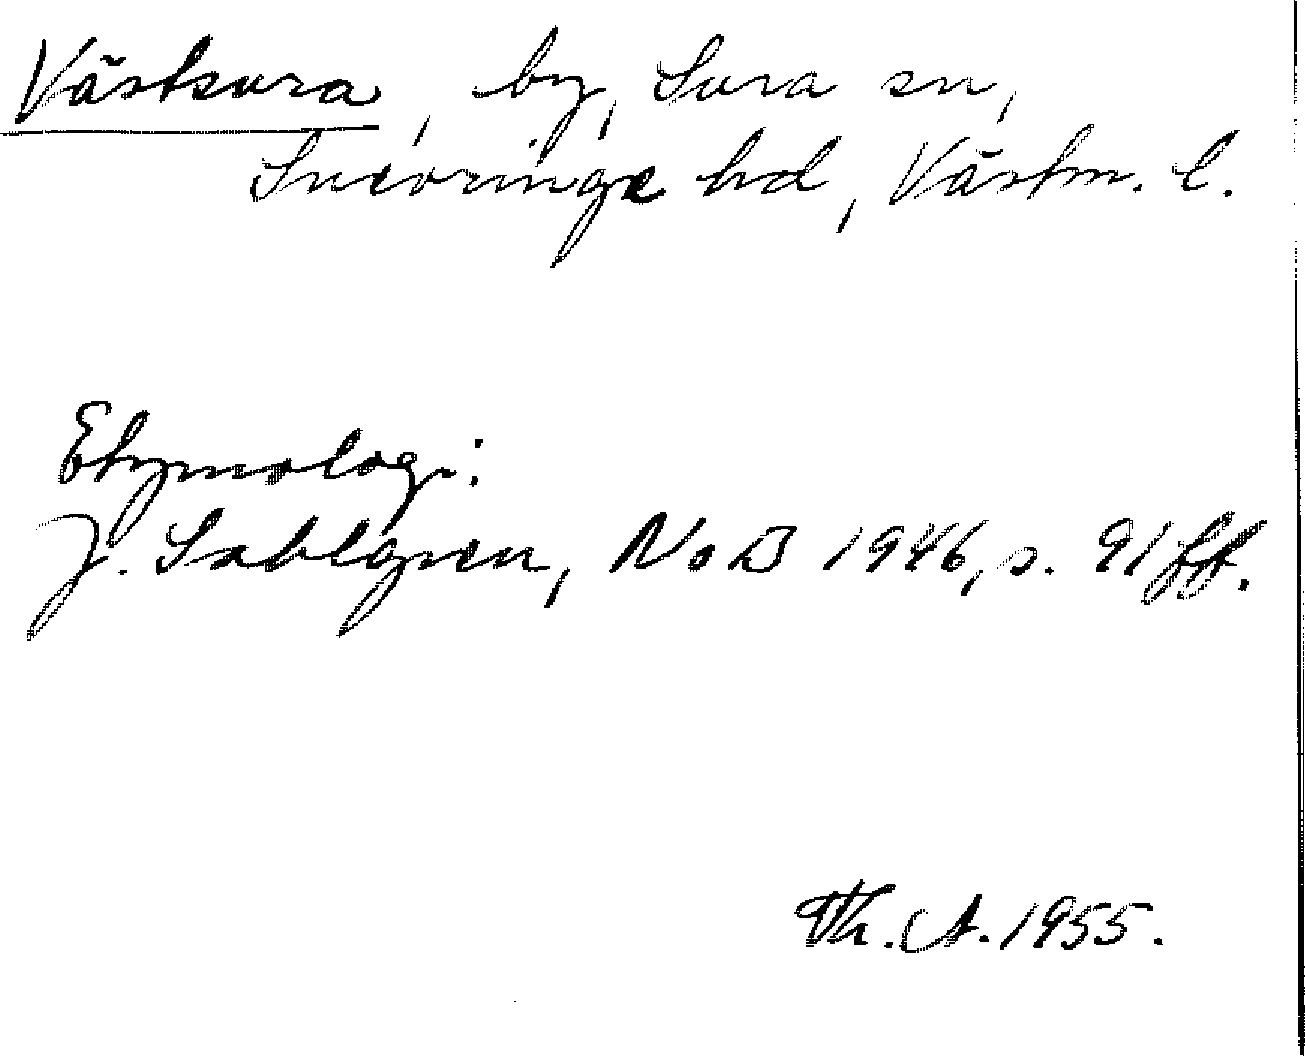 Västsura, by, Sura sn,
Snevringe hd, Västm. l.
Etymologi:
J. Sahlgren, NoB 1946, s. 91 ff.
Th. A. 1955.